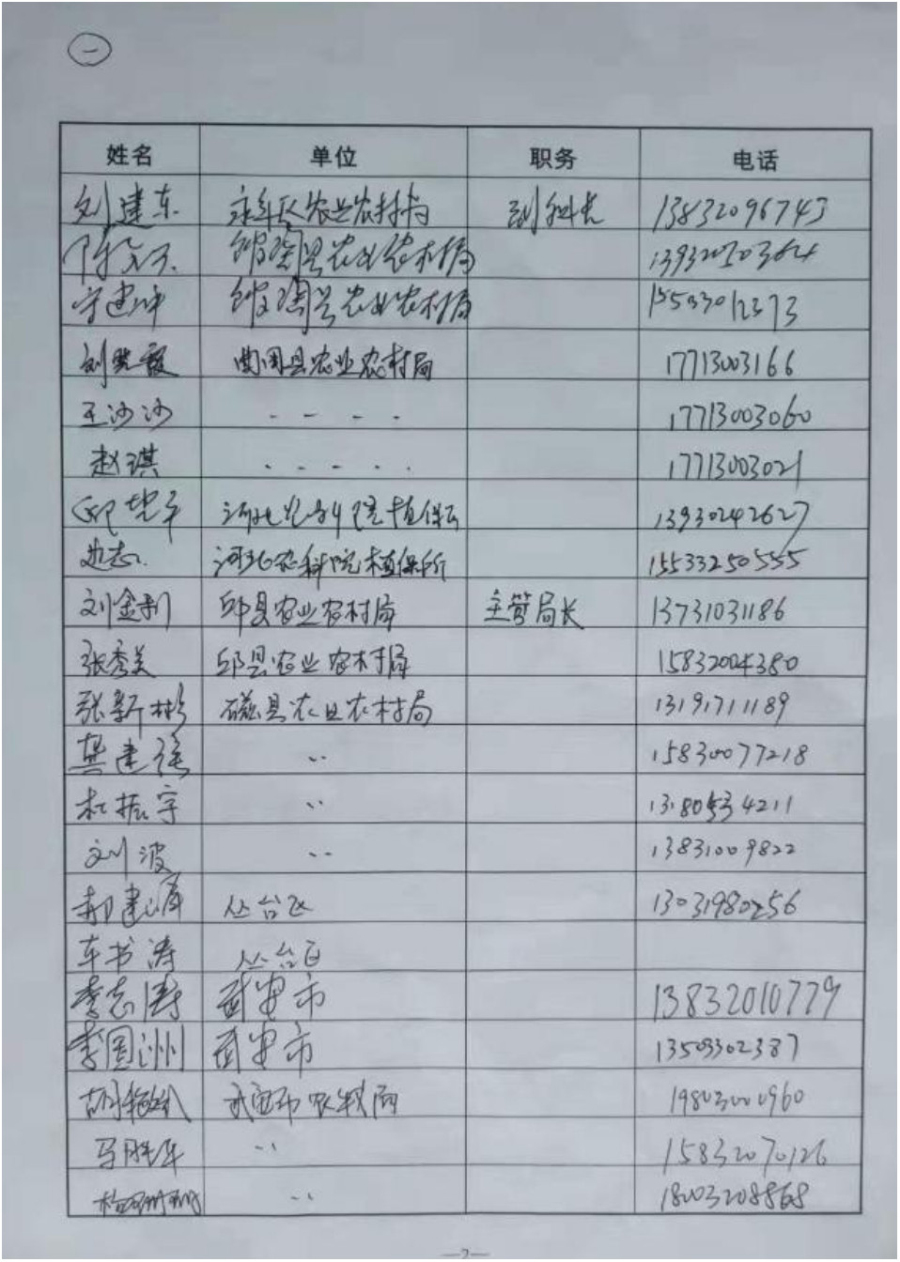 一
姓名 单位 职务 电话
刘建东 永年区农业农村局 副科长 13832096743
馆陶县农业农村局 13932050364
馆陶县农业农村局
刘晓霞 曲周县农业农村局 17713003166
王沙沙 - - - - 17713003060
赵琪 . . . . . 17713003021
13930242627
河北农科院植保所 15533250555
刘金利 邱县农业农村局 主管局长 13731031186
张秀美 邱县农业农村局 15832004380
张新彬 磁县农业农村局 13191711189
龚建强 .. 15830077218
杜振宇 .. 13180534211
刘波 .. 13831009822
郝建 丛台区 13031980256
车书涛 丛台区
李志涛 武安市 13832010779
李国洲 武安市 13503302387
武安市农牧局 19803000960
马胜军 .. 15832070126
.. 18003208868
—2—